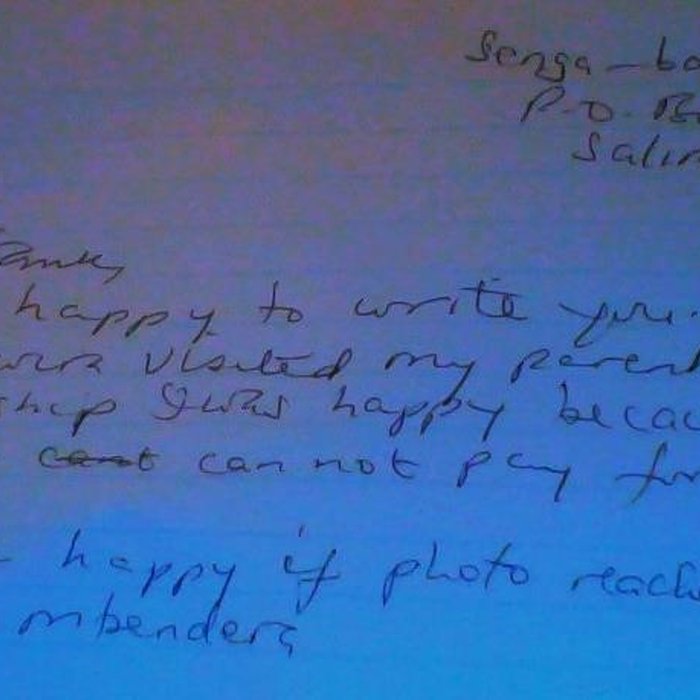 Senga-ba
P.O. B
Sali
happy to write you.
visited my parent
ship I was happy becau
can not pay for
happy if photo reach
mbenders